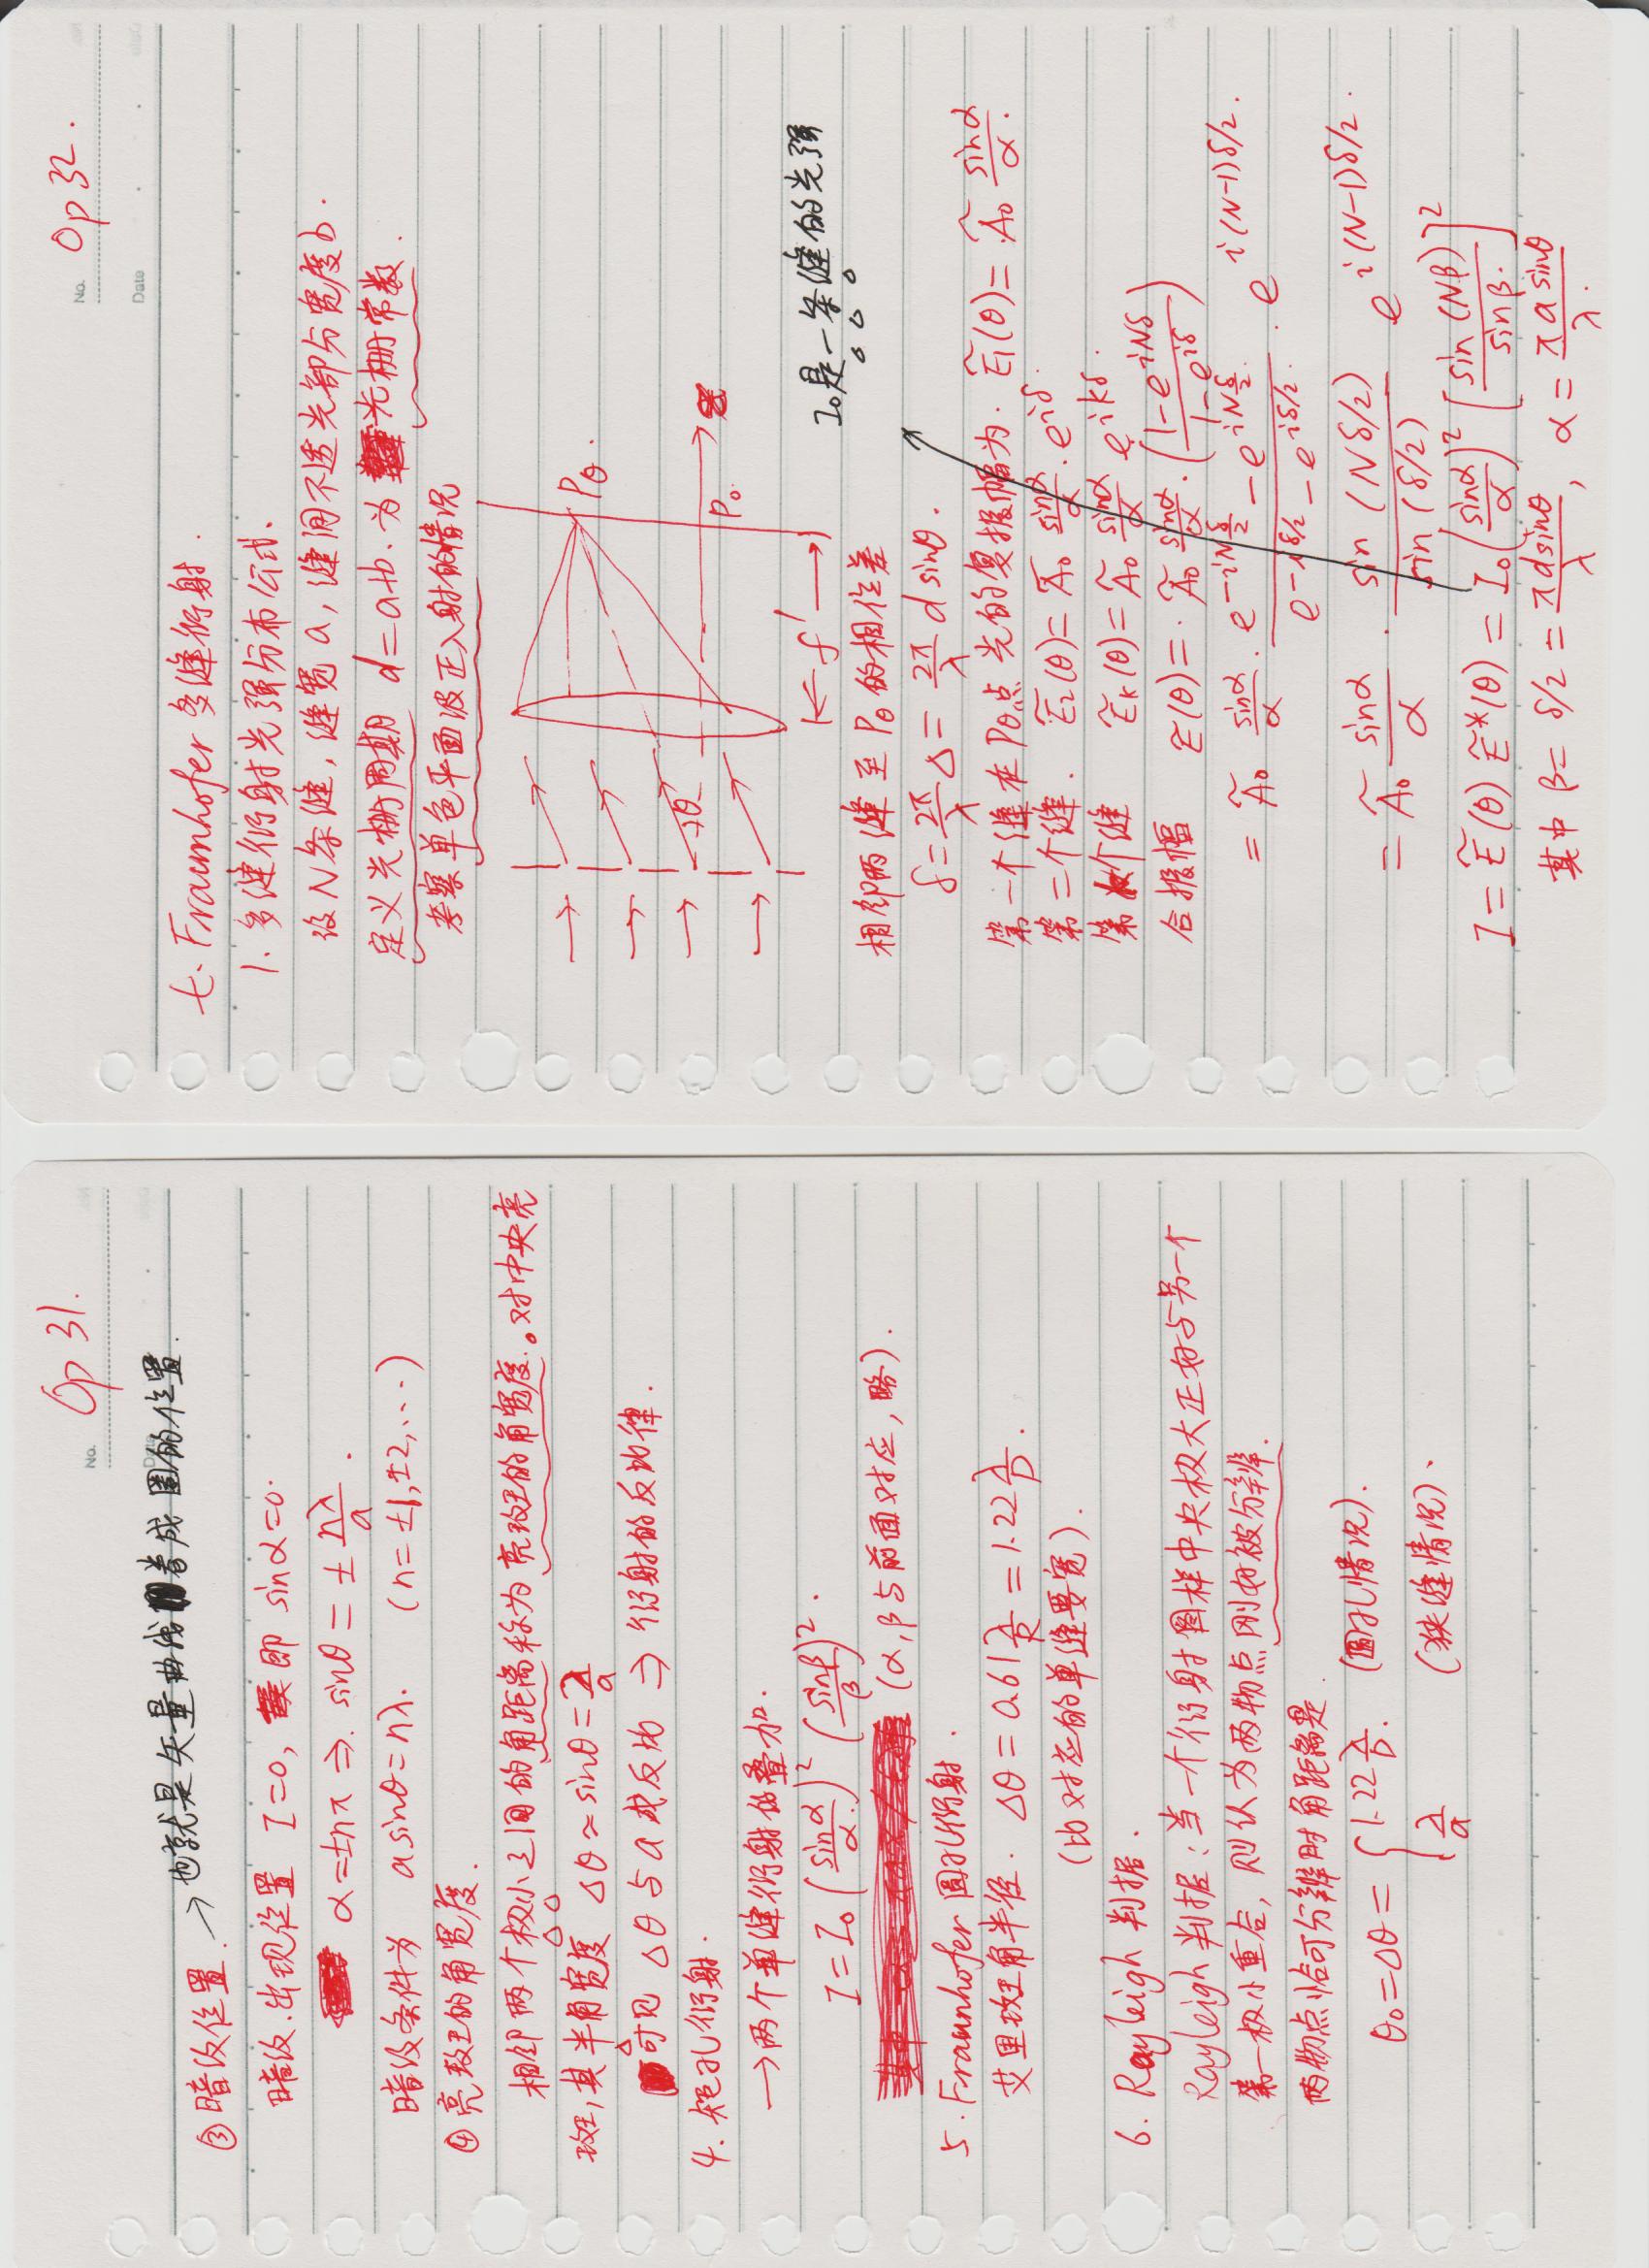 No. Op 31.
Date
③ 暗纹位置. → 也就是矢量曲线卷成圈的位置.
暗纹出现位置 I=0, 即 sinα=0.
α=±nπ ⇒ sinθ = ± nλ/a .
暗纹条件为 a sinθ=nλ. (n=±1,±2,···)
④ 亮斑的角宽度.
相邻两个极小之间的角距离称为亮斑的角宽度。对中央亮
斑,其半角宽度 Δθ≈sinθ=λ/a
可见 Δθ与a成反比 ⇒ 衍射的反比律.
4. 矩孔衍射.
→两个单缝衍射的叠加.
I=I₀ (sinα/α)² (sinβ/β)².
(α,β与前面对应,略).
5. Fraunhofer 圆孔衍射.
艾里斑角半径. Δθ=0.61 λ/R = 1.22 λ/D.
(比对应的单缝要宽).
6. Rayleigh 判据.
Rayleigh 判据:当一个衍射图样中央极大正好与另一个
第一极小重合,则认为两物点刚好被分辨.
两物点恰可分辨时角距离是
θ₀=Δθ= { 1.22 λ/D. (圆孔情况).
λ/a (狭缝情况).
No. Op 32.
Date
七. Fraunhofer 多缝衍射.
1. 多缝衍射光强分布公式.
设N条缝,缝宽a,缝间不透光部分宽度b.
定义光栅周期 d=a+b. 为光栅常数.
考察单色平面波正入射的情况
Pθ.
θ
P₀.
z
f′
I₀是一条缝的光强
相邻两缝至Pθ的相位差
δ= 2π/λ Δ = 2π/λ d sinθ.
第一个缝在Pθ点光的复振幅为. Ẽ₁(θ)= Ã₀ sinα/α.
第二个缝. Ẽ₂(θ)= Ã₀ sinα/α · e^{iδ}.
第k个缝 Ẽₖ(θ)= Ã₀ sinα/α e^{ikδ}.
合振幅 Ẽ(θ)= Ã₀ sinα/α · ( (1-e^{iNδ})/(1-e^{iδ}) )
= Ã₀ sinα/α · (e^{-iNδ/2} - e^{iNδ/2})/(e^{-iδ/2} - e^{iδ/2}) · e^{i(N-1)δ/2}.
= Ã₀ sinα/α · sin(Nδ/2)/sin(δ/2) e^{i(N-1)δ/2}.
I= Ẽ(θ) Ẽ*(θ) = I₀ (sinα/α)² [sin(Nβ)/sinβ]²
其中 β= δ/2 = πd sinθ/λ, α= πa sinθ/λ.